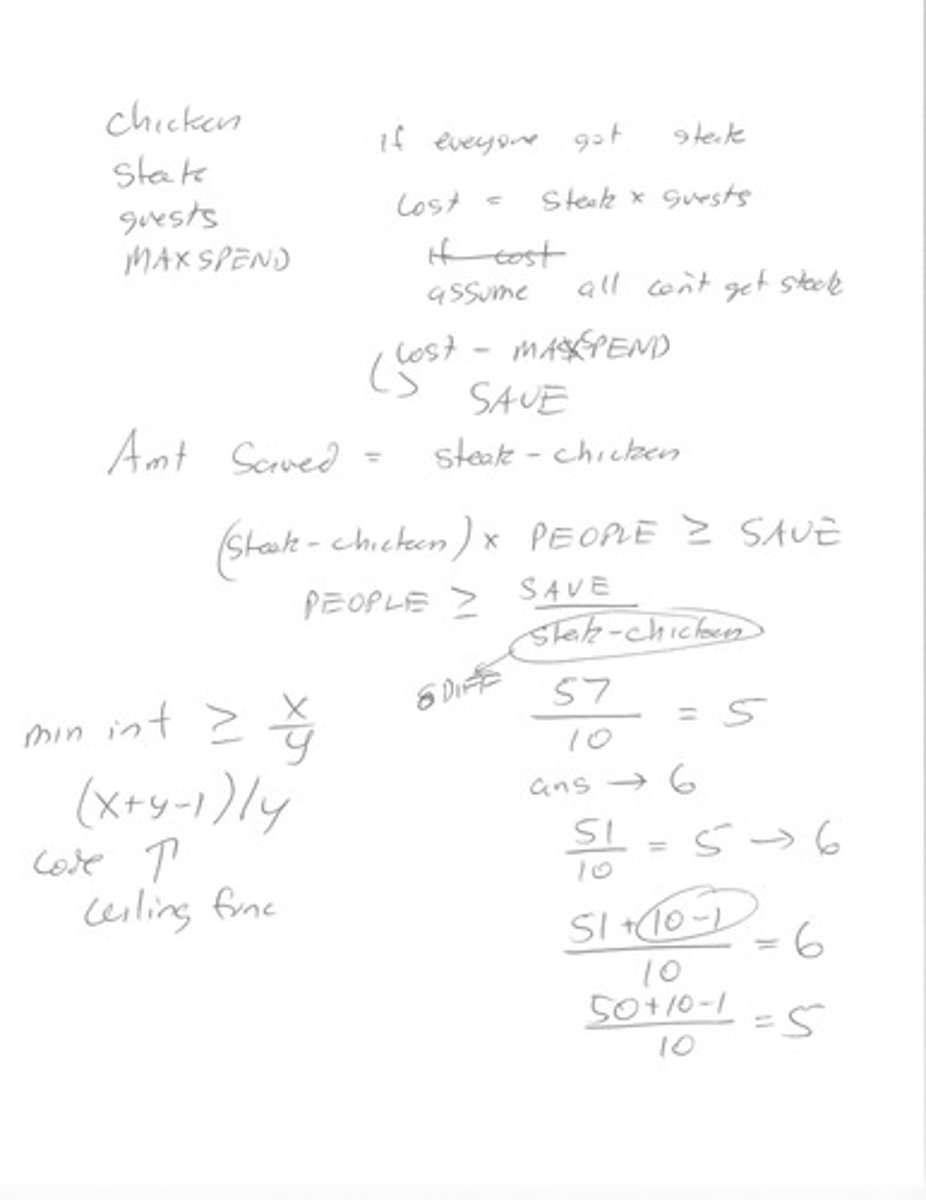 chicken
steak
guests
MAXSPEND
if everyone got steak
Cost = steak x guests
If cost
assume all can't get steak
Cost - MAXSPEND
SAVE
Amt Saved = steak - chicken
(steak - chicken) x PEOPLE ≥ SAVE
PEOPLE ≥ SAVE / steak - chicken
DIFF
57 / 10 = 5
ans → 6
51 / 10 = 5 → 6
51 + 10 - 1 / 10 = 6
50 + 10 - 1 / 10 = 5
min int ≥ x / y
(x+y-1)/y
code ↑
ceiling func